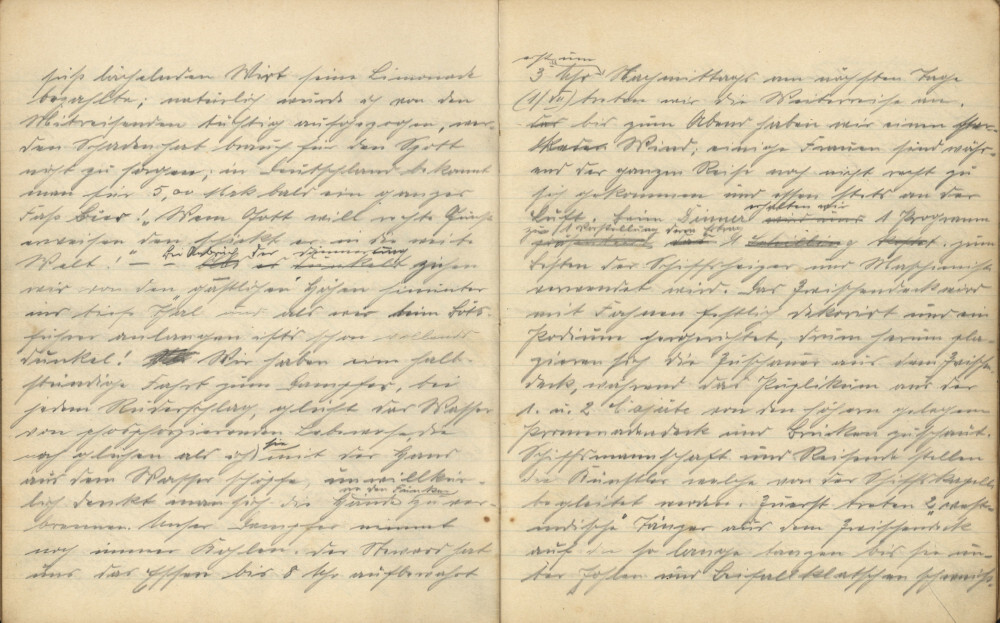 süß lächelnden Wirt seine Limonade
bezahlte; natürlich wurde ich von den
Mitreisenden tüchtig aufgezogen, wer
den Schaden hat brauch für den Spott
nicht zu sorgen, in Deutschland bekommt
man für 5,00 Mck bald ein ganzes
Faß Bier! „Wem Gott will rechte Gunst
erweisen den schickt er in die weite
Welt." – – Bei Anbruch der Dämmerung
ziehen
wir von den gastlichen Höhen hinunter
ins tiefe Thal und als wir beim Boots-
führer anlangen ists schon vollends
dunkel! Wir haben eine halb-
stündige Fahrt zum Dampfer, bei
jedem Ruderschlag, glüht das Wasser
von phosphorzierenden Lebewesen, die
noch glühen als ich sie mit der Hand
aus dem Wasser schöpfe, unwillkür-
lich denkt man sich die Hände zu ver-
an den Funken
brennen. Unser Dampfer nimmt
noch immer Kohlen. Der Steward hat
uns das Essen bis 8 Uhr aufbewahrt
erst um
3 Uhr Nachmittags am nächsten Tage
treten wir die Weiterreise an.
bis zum Abend haben wir einen
Wind; einige Frauen sind währ-
end der ganzen Reise noch nicht recht zu
sich gekommen und stets an der
Luft. Beim Dinner erhalten wir 1 Programm
zu 1 Vorstellung deren Ertrag
zum
Besten der Schiffsheizer und Maschinist
verwendet wird. Das Zwischendeck wird
mit Fahnen festlich dekorirt und ein
Podium hergerichtet, drum herum pla-
zieren sich die Zuschauer aus dem Zwisch.
deck, während das Puplikum aus der
1. u. 2 Cajüte von den höhern gelegenen
Promenadendeck und Brücken zuschaut.
Schiffsmannschaft und Reisende stellen
die Künstler welche von der Schiffskapelle
begleitet werden. Zuerst treten 2 west-
indische Tänzer aus dem Zwischendeck
auf die so lange tanzen bis sie un-
ter Johlen und Beifallklatschen schweiß-